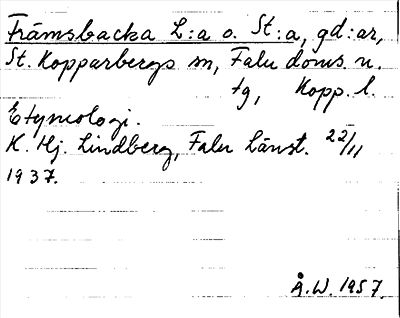 Främsbacka L:a o. St:a, gd:ar,
St. Kopparbergs sn, Falu doms. n.
tg, Kopp. l.
Etymologi.
K. Hj. Lindberg, Falu Länst. 22/11
1937.
Å.W. 1957.